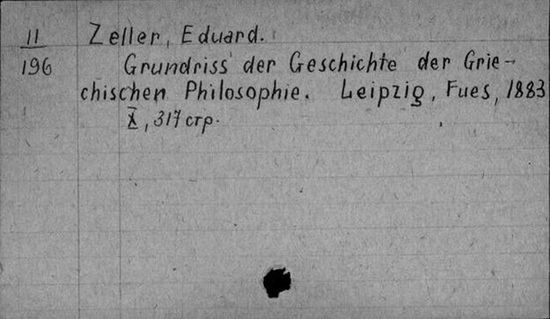 11 Zeller, Eduard.
196 Grundriss der Geschichte der Grie-
chischen Philosophie. Leipzig, Fues, 1883
X, 317 стр.